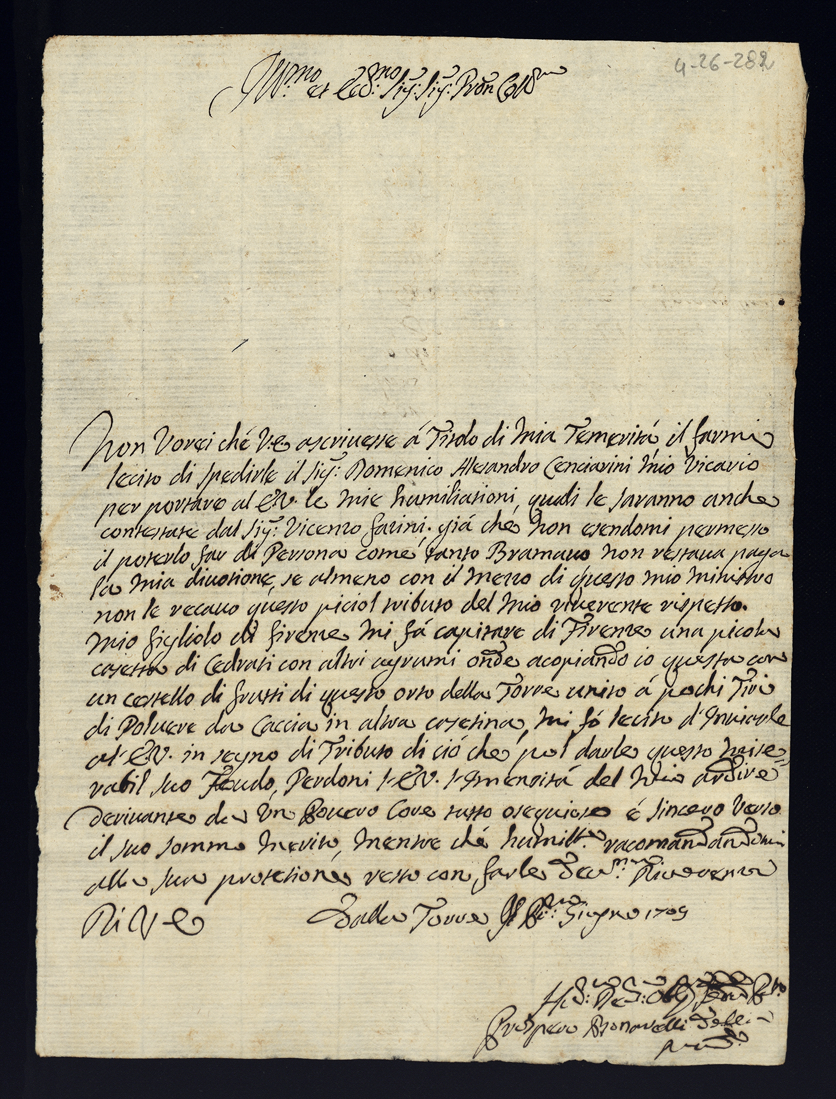 4-26-282
Ill.mo et Ecc.mo Sig: Sig: Pron Coll.mo
Non Vorei ché V.e ascrivesse á Titolo di Mia Temeritá il farmi
lecito di spedirle il Sig: Domenico Alesandro Cenciarini Mio Vicario
per portare al E.V. le Mie humiliationi, quali le saranno anche
contestate dal Sig: Vicenzo farini. giá che Non esendomi permesso
il poterlo far di Persona come tanto Bramavo non restava paga
la Mia divotione, se almeno con il Mezzo di questo mio Ministro
non le recavo questo piciol tributo del Mio riverente rispetto.
Mio figliolo di firenze Mi fá capitare di Firenze una picola
casetta di Cedrati con altri agrumi onde acopiando io questa con
un cestello di frutti di questo orto della Torre unito á pochi Tiri
di Polvere da Caccia in altra casetina, Mi fó lecito d'Inviarle
al E.V. in segno di Tributo di ció che puol darle questo Mise=
rabil suo Feudo, Perdoni l'E.V. l'Imensitá del Mio ardire
derivante da Un Povero Core tutto osequioso é sincero Verso
il suo sommo Merito, Mentre ché humilt.e racomandandomi
alla sua protetione resto con farle Riverenza
Di V E Dalla Torre Giugno 1709
Prospero Bonarelli della